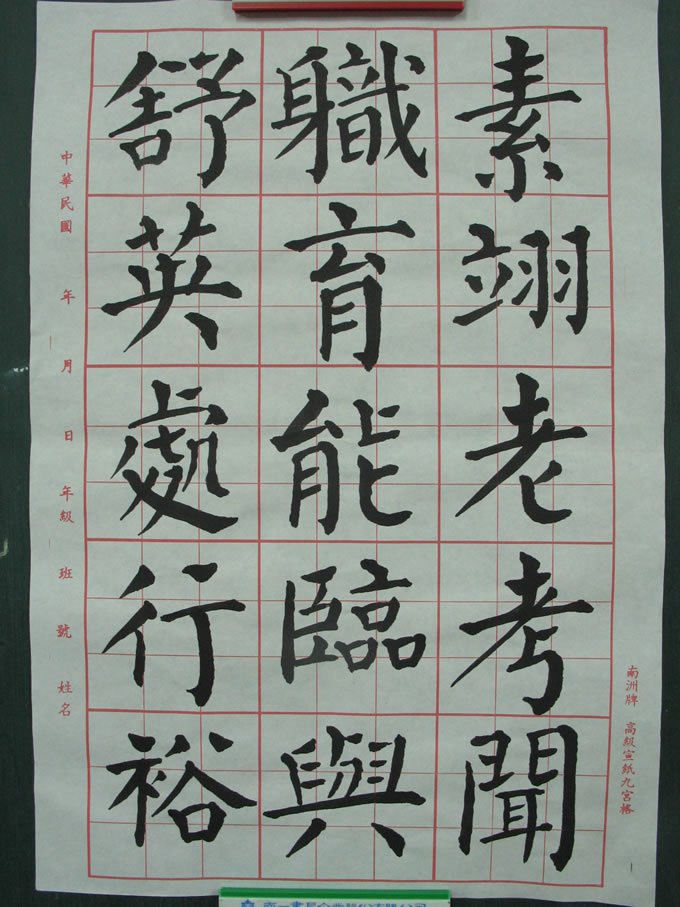 素翊老考聞
職育能臨與
舒英處行裕
中華民國 年 月 日 年級 班 號 姓名
南洲牌 高級宣紙九宮格